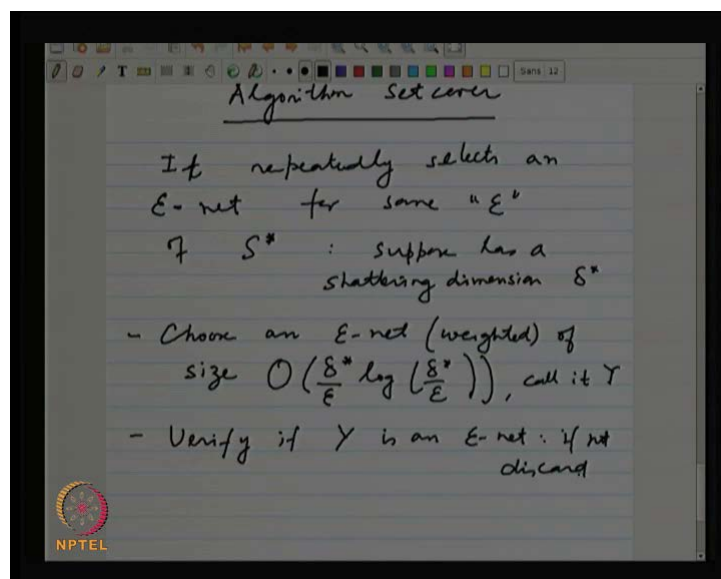 T
Sans 12
Algorithm Set cover
It repeatedly selects an
ε-net for some "ε"
of S* : suppose has a
shattering dimension δ*
- Choose an ε-net (weighted) of
size O(δ*/ε log (δ*/ε)), call it Y
- Verify if Y is an ε-net : if not
discard
NPTEL